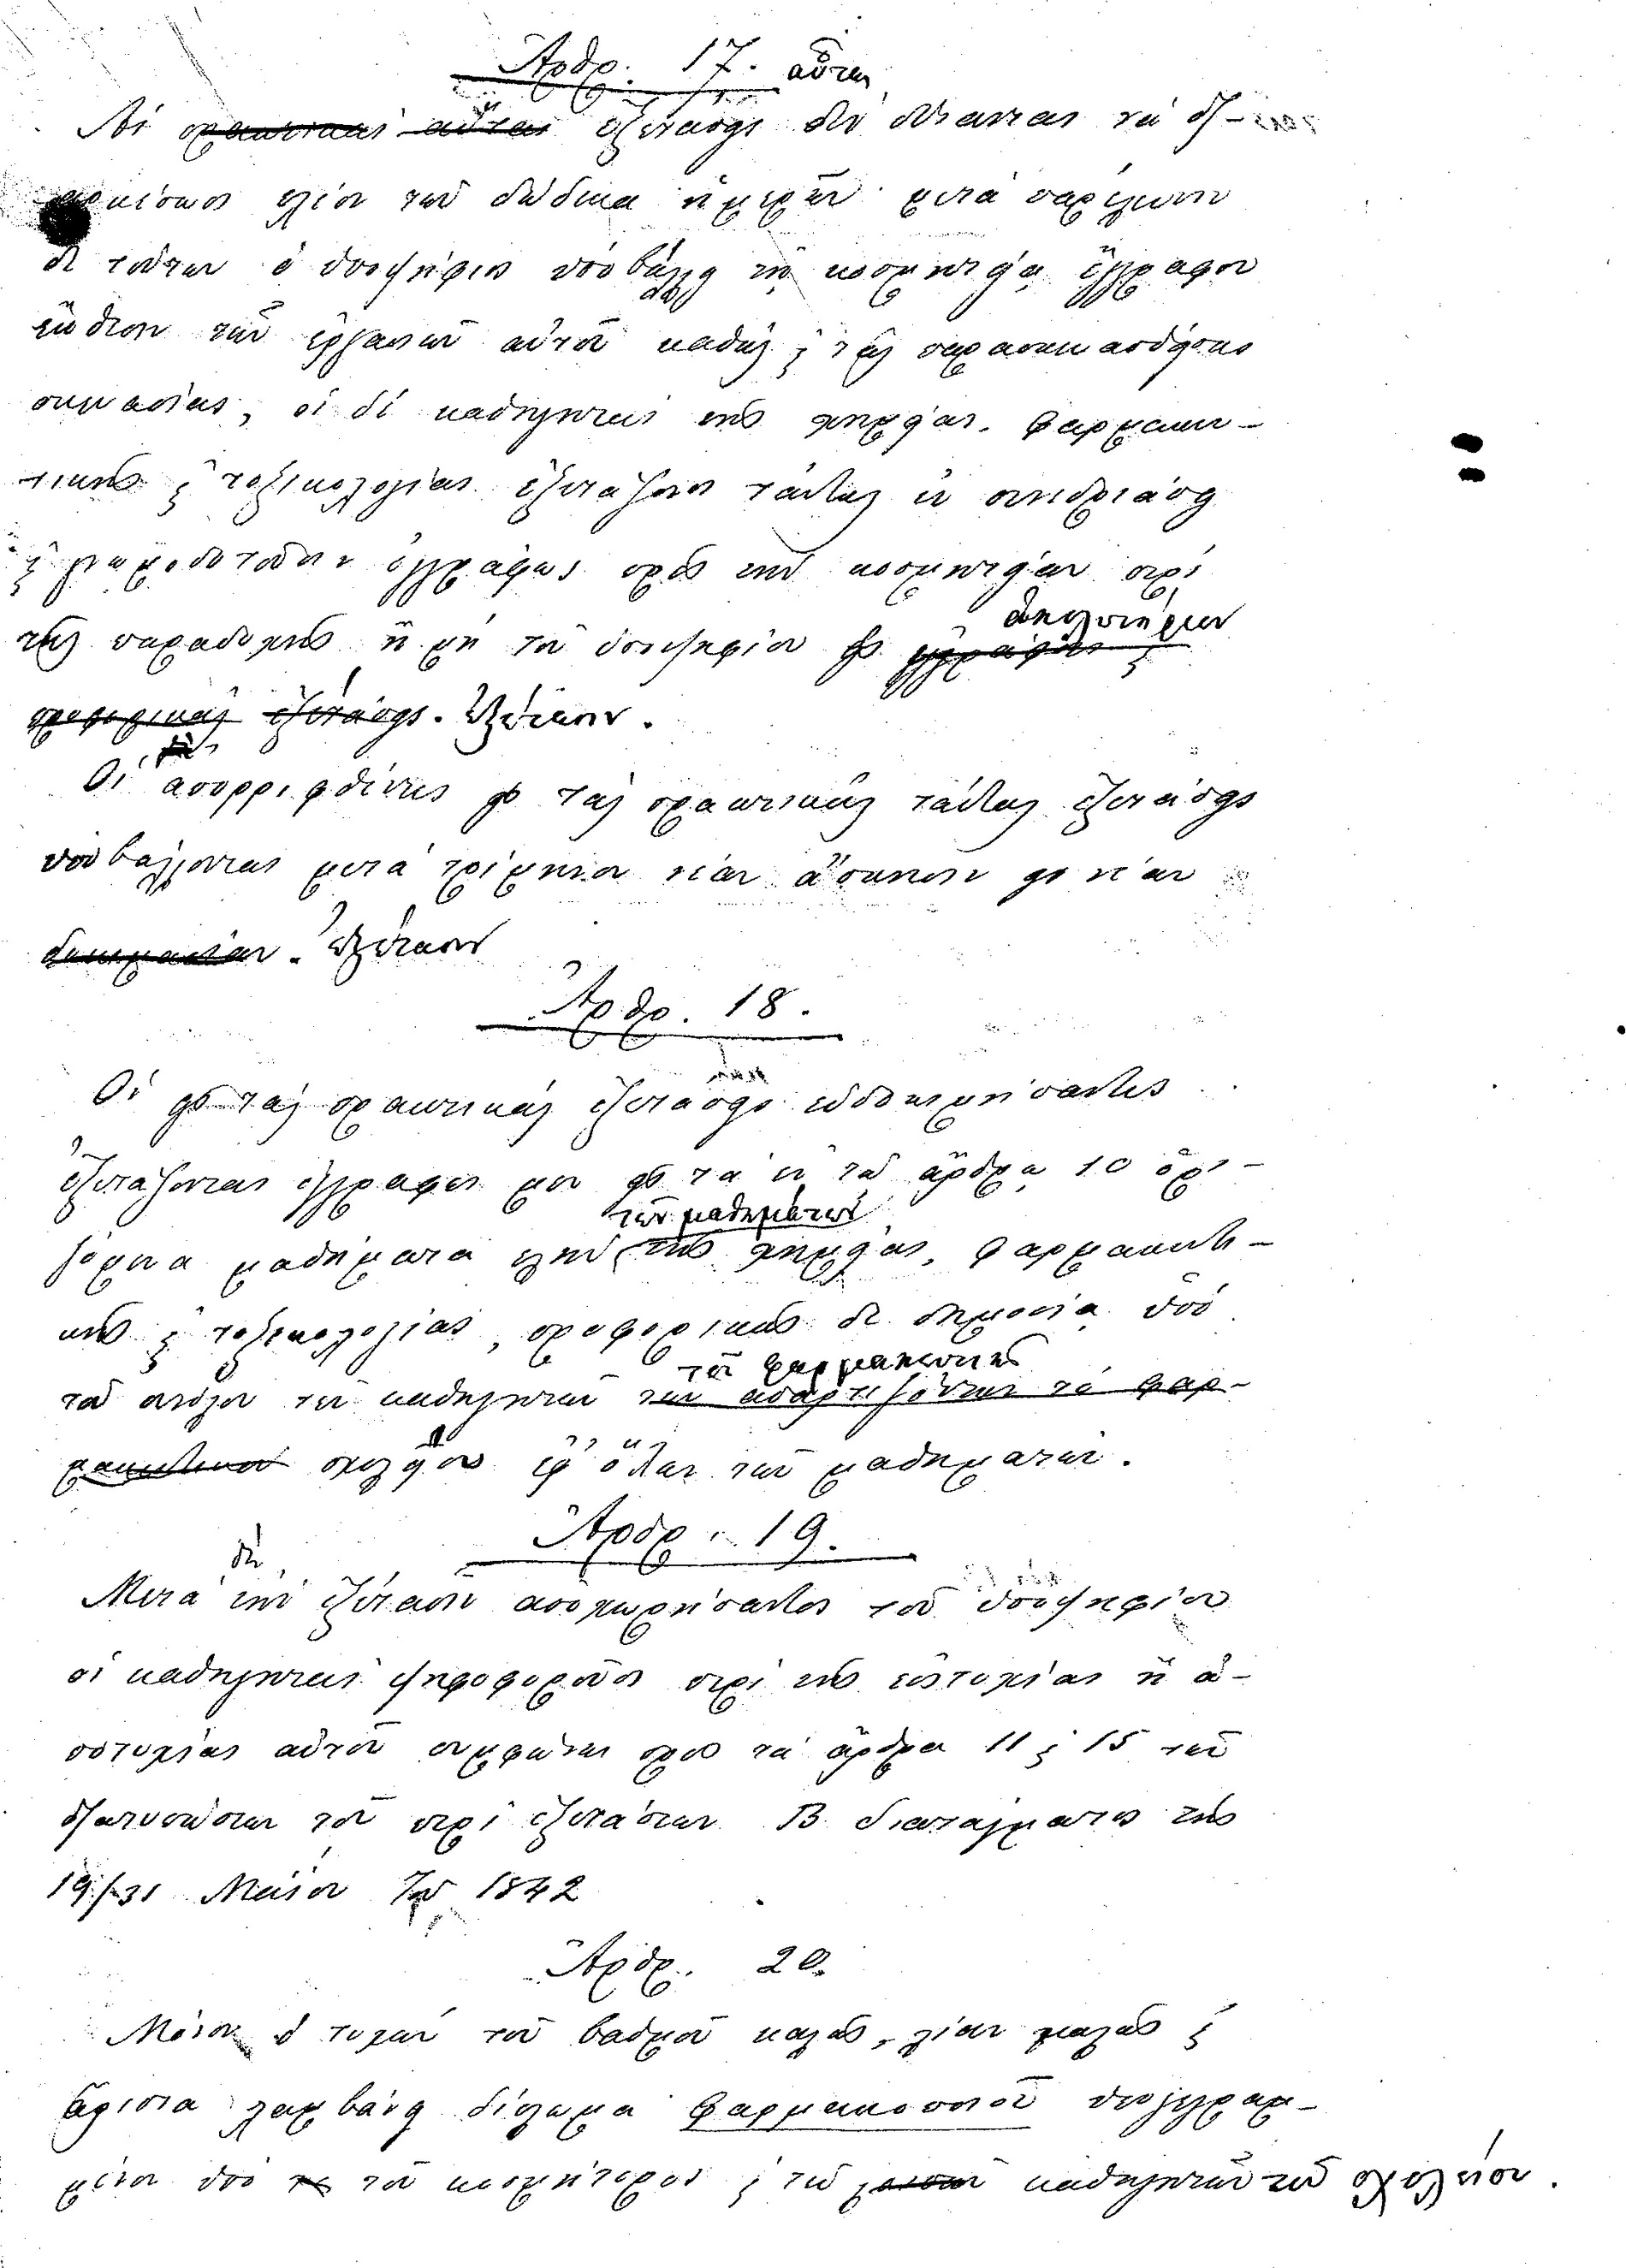 Ἄρθρ. 17. αὗται
Αἱ πρακτικαὶ αὗται ἐξετάσεις δὲν δύνανται νὰ ἐξ-
αρκέσωσι πλέον τῶν δώδεκα ἡμερῶν· μετὰ παρέλευσιν
δὲ τούτων ὁ ὑποψήφιος ὑποβάλλει τῇ κοσμητείᾳ ἔγγραφον
ἔκθεσιν τῶν ἐργασιῶν αὐτοῦ καθὼς καὶ τὰς παρασκευασθείσας
σκευασίας, οἱ δὲ καθηγηταὶ τῆς χημείας, φαρμακευ-
τικῆς καὶ τοξικολογίας ἐξετάζουσι ταύτας ἐν συνεδριάσει
καὶ γνωμοδοτοῦσιν ἐγγράφως πρὸς τὴν κοσμητείαν περὶ
τῆς παραδοχῆς ἢ μὴ τοῦ ὑποψηφίου εἰς ἐγγράφους καὶ
προφορικὰς ἐξετάσεις. ἐξέτασιν.
Οἱ ἀπορριφθέντες εἰς τὰς πρακτικὰς ταύτας ἐξετάσεις
ὑποβάλλονται μετὰ τρίμηνον νέαν ἄσκησιν εἰς νέαν
δοκιμασίαν. ἐξέτασιν
Ἄρθρ. 18.
Οἱ εἰς τὰς πρακτικὰς ἐξετάσεις εὐδοκιμήσαντες
ἐξετάζονται ἐγγράφως μὲν εἰς τὰ ἐν τῷ ἄρθρῳ 10 ὁρι-
τῶν μαθημάτων
ζόμενα μαθήματα πλὴν τῆς χημείας, φαρμακευτι-
κῆς καὶ τοξικολογίας, προφορικῶς δὲ δημοσίᾳ ὑπὸ
τοῦ φαρμακευτικοῦ
τοῦ συλλόγου τῶν καθηγητῶν τῶν ἀπαρτιζόντων τὸ φαρ-
μακευτικὸν σχολεῖον ἐφ' ὅλων τῶν μαθημάτων.
Ἄρθρ. 19.
δὲ
Μετὰ τὴν ἐξέτασιν ἀποχωρήσαντος τοῦ ὑποψηφίου
οἱ καθηγηταὶ ψηφοφοροῦσι περὶ τῆς ἐπιτυχίας ἢ ἀ-
ποτυχίας αὐτοῦ συμφώνως πρὸς τὰ ἄρθρα 11 καὶ 15 τοῦ
ἐξατυπώσεων τοῦ περὶ ἐξετάσεων Β. διατάγματος τῆς
19/31 Μαΐου τοῦ 1842
Ἄρθρ. 20.
Μόνον ὁ τυχὼν τοῦ βαθμοῦ καλῶς, λίαν καλῶς καὶ
ἄριστα λαμβάνει δίπλωμα φαρμακοποιοῦ ὑπογεγραμ-
μένον ὑπὸ τοῦ κοσμήτορος καὶ τῶν λοιπῶν καθηγητῶν τοῦ σχολείου.